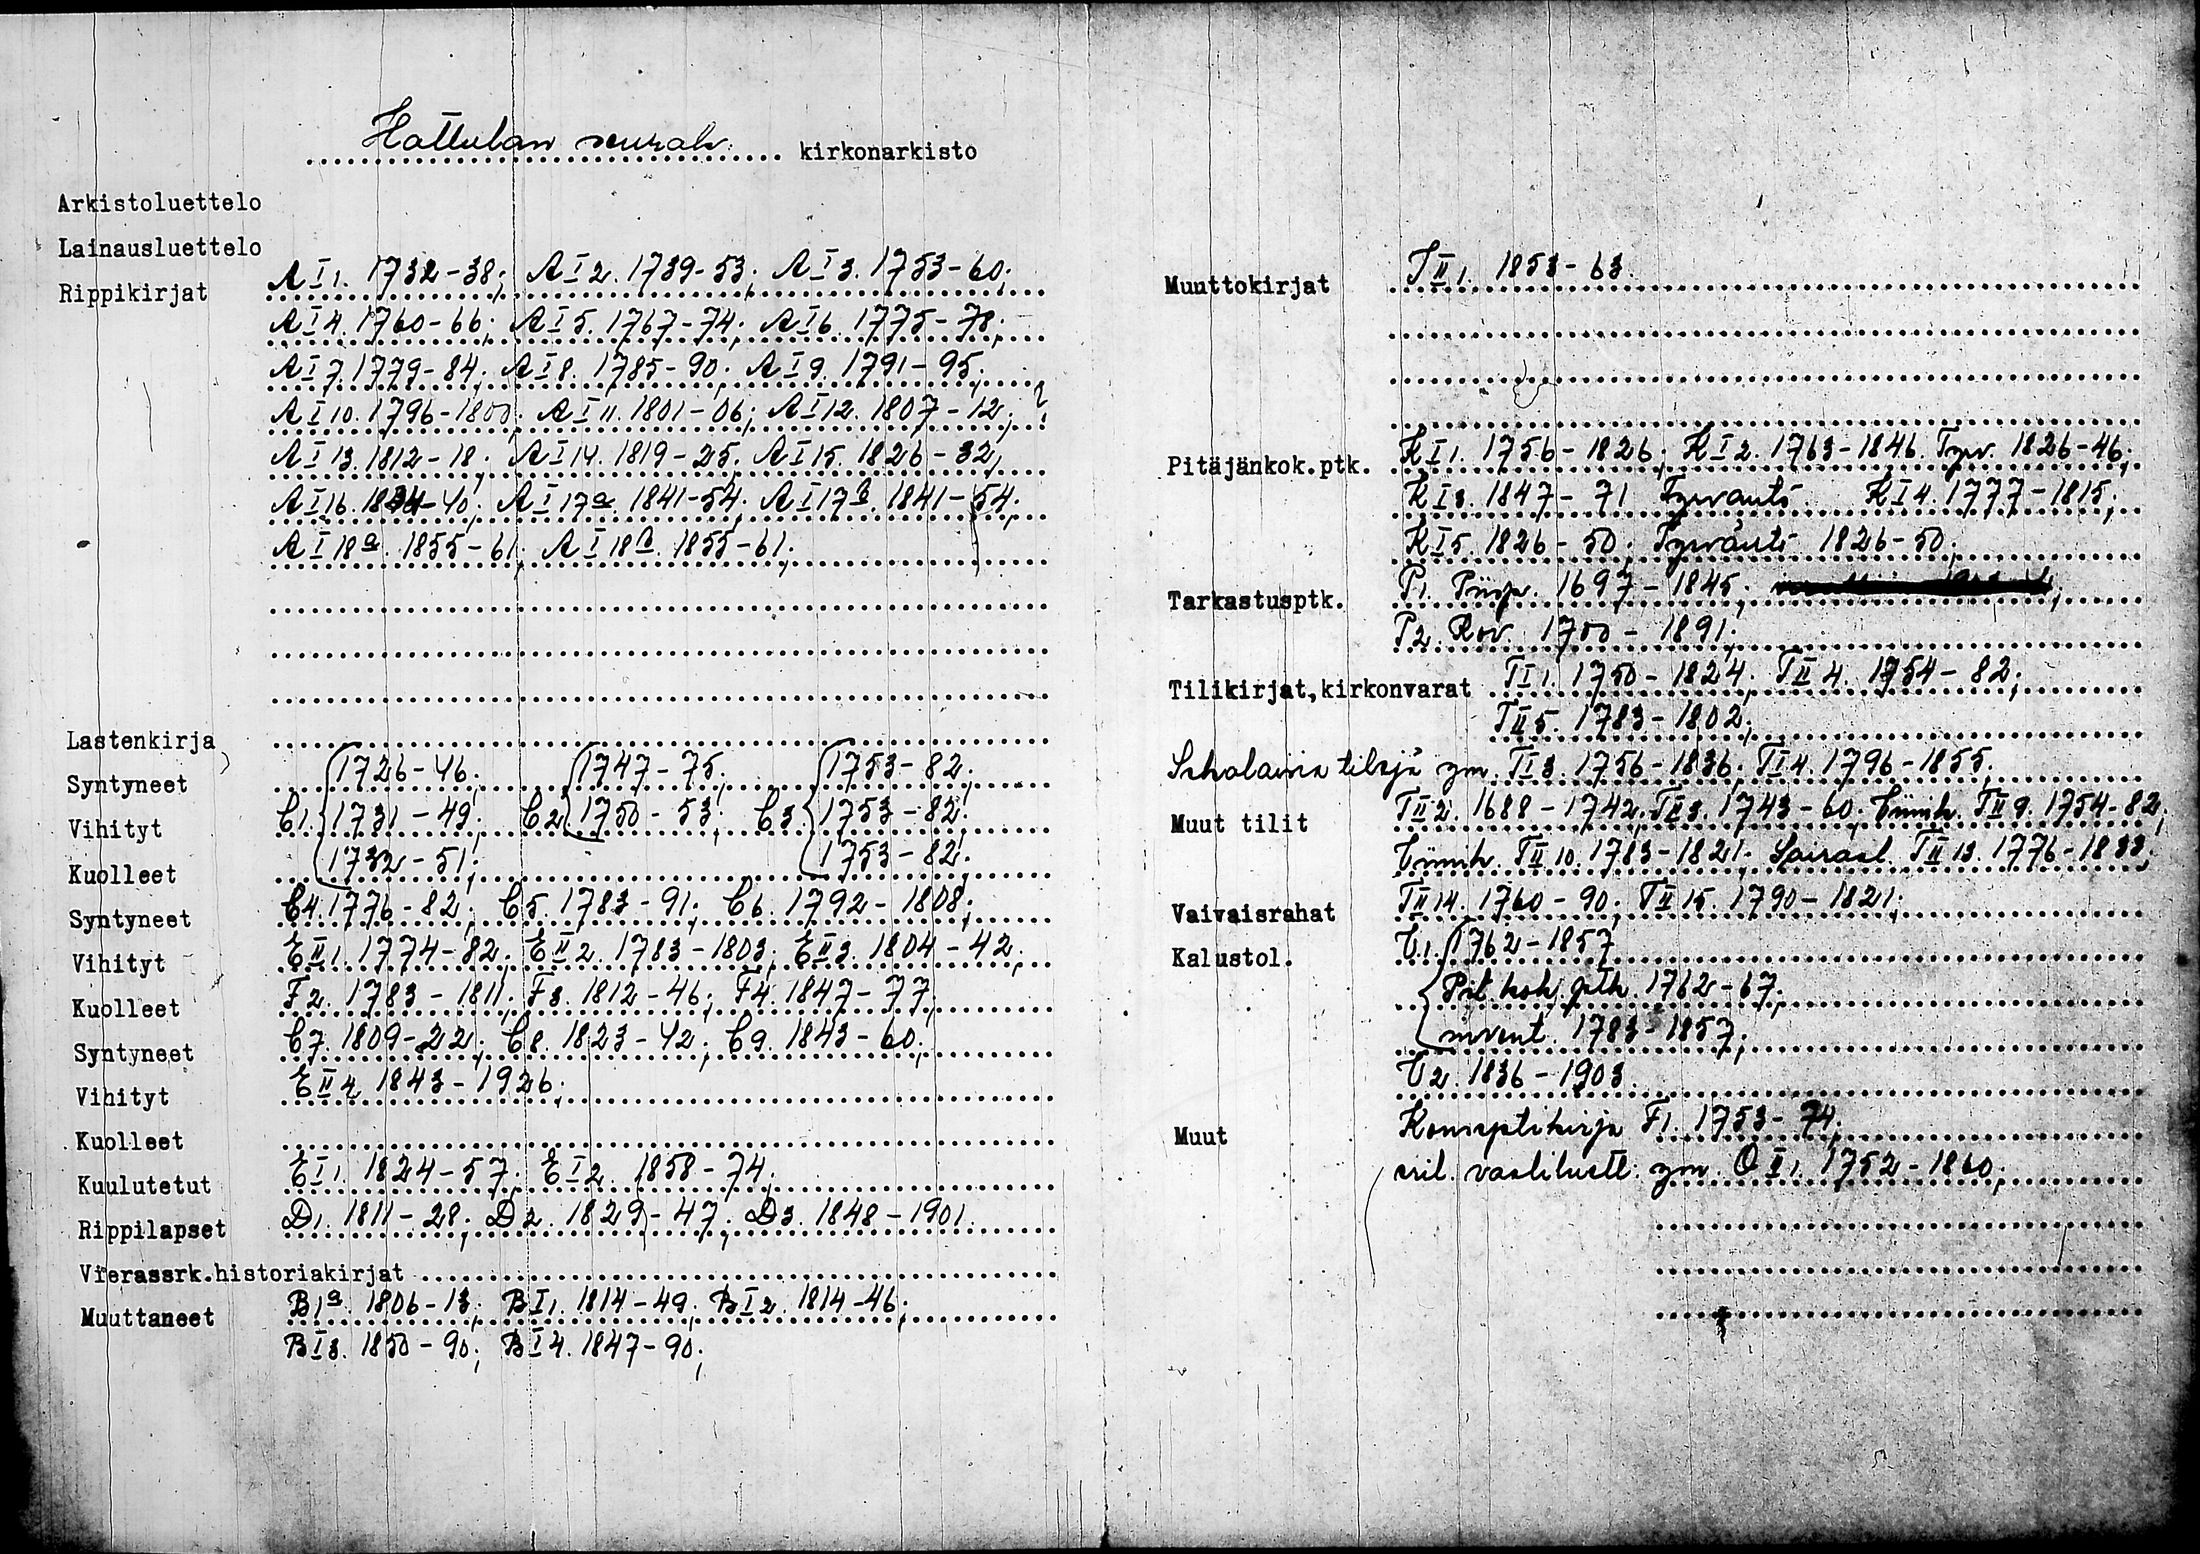 Hattulan seurak. kirkonarkisto
Arkistoluettelo
Lainausluettelo
Rippikirjat A I 1. 1732-38; A I 2. 1739-53; A I 3. 1753-60;
A I 4. 1760-66; A I 5. 1767-74; A I 6. 1775-78;
A I 7. 1779-84; A I 8. 1785-90; A I 9. 1791-95;
A I 10. 1796-1800; A I 11. 1801-06; A I 12. 1807-12;
A I 13. 1812-18; A I 14. 1819-25; A I 15. 1826-32;
A I 16. 1834-40; A I 17a. 1841-54; A I 17b. 1841-54;
A I 18a. 1855-61; A I 18b. 1855-61;
Lastenkirja
Syntyneet 1726-46; 1747-75; 1753-82;
Vihityt C1. 1731-49; C2 1750-53; C3. 1753-82;
Kuolleet 1732-51; 1753-82;
Syntyneet C4. 1776-82; C5. 1783-91; C6. 1792-1808;
Vihityt E II 1. 1774-82; E II 2. 1783-1803; E II 3. 1804-42;
Kuolleet F2. 1783-1811; F3. 1812-46; F4. 1847-77;
Syntyneet C7. 1809-22; C8. 1823-42; C9. 1843-60;
Vihityt E II 4. 1843-1926;
Kuolleet
Kuulutetut E I 1. 1824-57; E I 2. 1858-74;
Rippilapset D1. 1811-28; D2. 1829-47; D3. 1848-1901.
Vierassrk.historiakirjat
Muuttaneet B1a. 1806-13; B I 1. 1814-49; B I 2. 1814-46;
B I 3. 1850-90; B I 4. 1847-90;
Muuttokirjat II 1. 1853-63.
Pitäjänkok.ptk. K I 1. 1756-1826; K I 2. 1763-1846. Tyrv. 1826-46;
K I 3. 1847-71 K I 4. 1777-1815;
K I 5. 1826-50; 1826-50;
Tarkastusptk. P1. Piisp. 1697-1845;
P2. Rov. 1700-1891;
Tilikirjat,kirkonvarat T I 1. 1750-1824; T II 4. 1754-82;
T II 5. 1783-1802;
tilejä ym. T I 3. 1756-1836; T I 4. 1796-1855;
Muut tilit T II 2. 1688-1742; T II 3. 1743-60; T II 9. 1754-82;
T II 10. 1783-1821; Sairaal. T II 13. 1776-1833;
Vaivaisrahat T II 14. 1760-90; T II 15. 1790-1821;
Kalustol. U1. 1762-1857
Pit. kok. ptk. 1762-67;
invent. 1783-1857;
U2. 1836-1903.
Muut Konseptikirja F1. 1753-74;
ym. O I 1. 1752-1860;